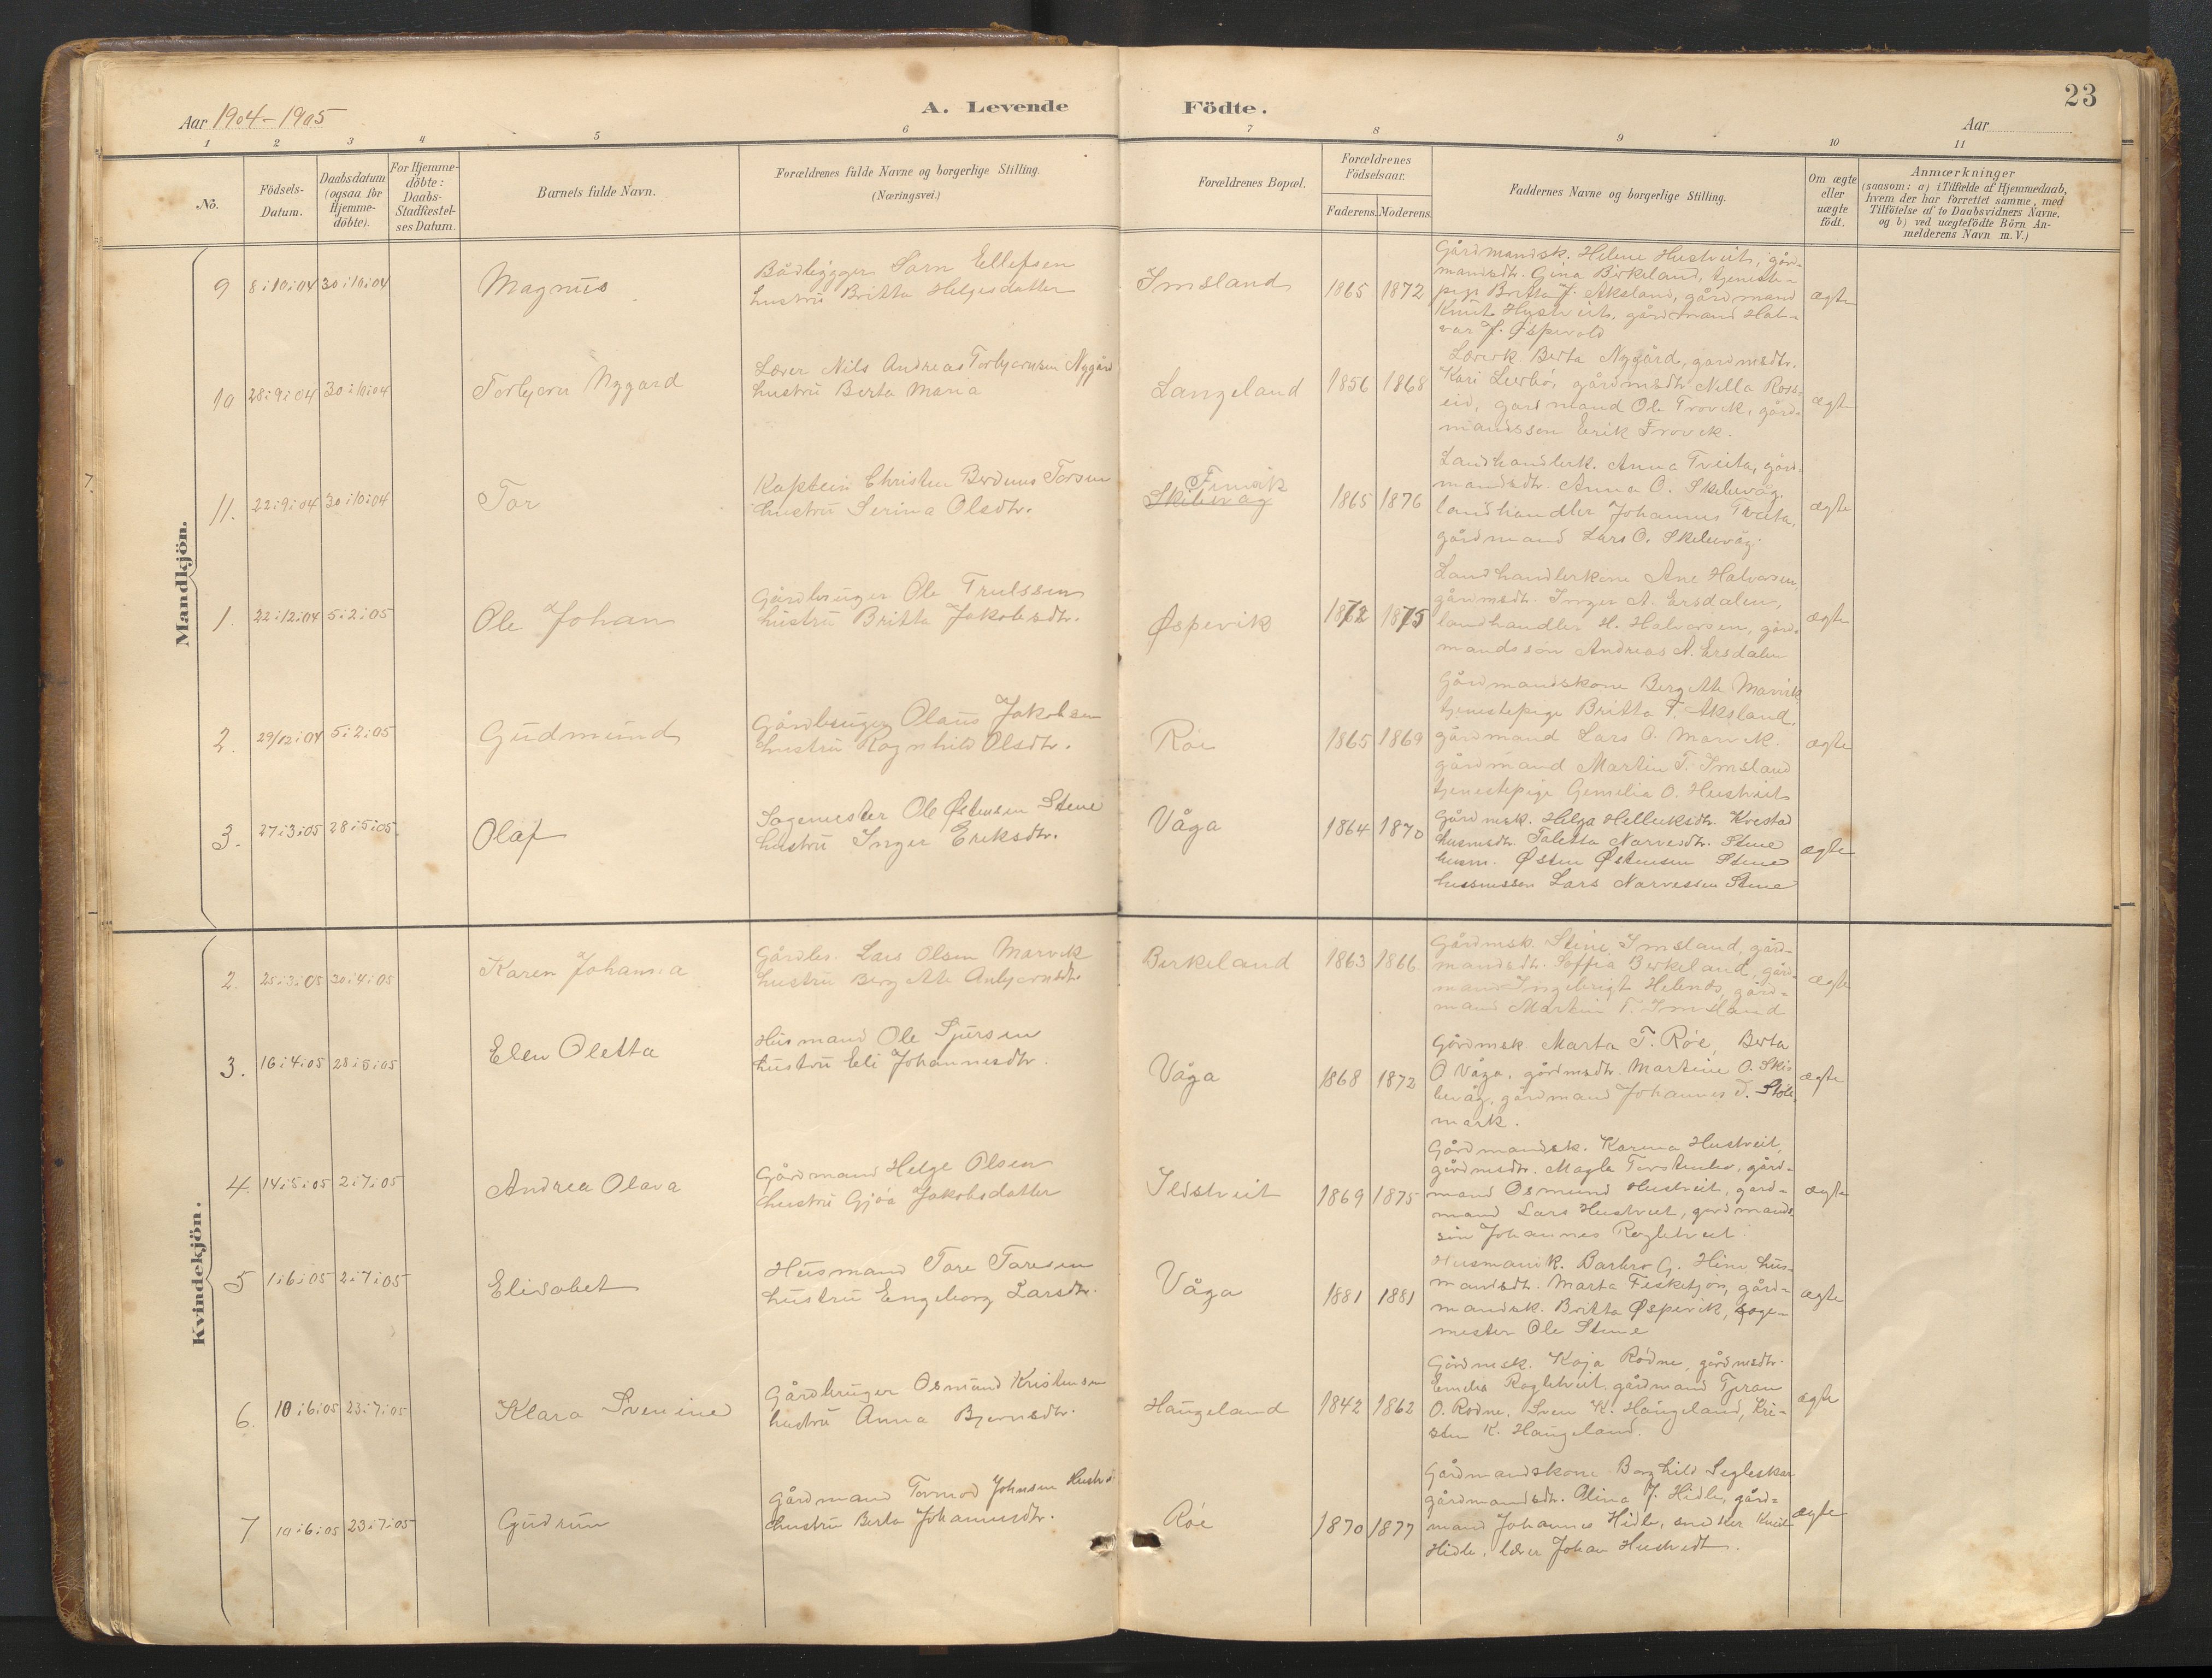 Aar 1904-1905
A. Levende Födte.
23
Aar
1 2 3 4 5 6 7 8 9 10 11
No.
Födsels-
Datum.
Daabsdatum
(ogsaa for
Hjemme-
döbte).
For Hjemme-
döbte:
Daabs-
Stadfæstel-
ses Datum.
Barnets fulde Navn.
Forældrenes fulde Navne og borgerlige Stilling.
(Næringsvei.)
Forældrenes Bopæl.
Forældrenes
Födselsaar.
Faderens. Moderens.
Faddernes Navne og borgerlige Stilling.
Om ægte
eller
uægte
födt.
Anmærkninger
(saasom: a) i Tilfælde af Hjemmedaab,
hvem der har forrettet samme, med
Tilföielse af to Daabsvidners Navne,
og b) ved uægtefödte Börn An-
melderens Navn m. V.)
Mandkjön.
9 8:10:04 30:10:04 Magnus
Bådbygger Sørn Ellefsen
hustru Britta Helgesdatter
Imsland 1865 1872
Gårdmandsk. Helene Hustveit, gård-
mandsdtr. Gina Birkeland, tjeneste-
pige Britta J. Aksland, gårdmand
Knut Hustveit, gårdmand Hal-
var J. Øspevold
ægte
10 28:9:04 30:10:04 Torbjørn Nygård
Lærer Nils Andreas Torbjørnsen Nygård
hustru Berta Maria
Langeland 1856 1868
Lærerk Berta Nygård, gårdmsdtr.
Kari gårdmsdtr Nella Ross-
eid, gårdmand Ole Frovik, gård-
mandssøn Erik Frovik.
ægte
11. 22:9:04 30:10:04 Tor
Kaptein Christen Berduus Torsen
hustru Serina Olsdtr.
Skibevåg 1865 1876
Landhandlerk. Anna Tveita, gård-
mandsdtr. Anna O. Skibevåg.
landhandler Johannes Tveita,
gårdmand Lars O. Skibevåg.
ægte
1. 22:12:04 5:2:05 Ole Johan
Gårdbruger Ole Trulssen
hustru Britta Jakobsdtr.
Øspevik 1872 1875
Landhandlerkone Ane Halvorsen,
gårdmsdtr. Inger A. Ersdalen,
landhandler H. Halvorsen, gård-
mandssøn Andreas A. Ersdalen
ægte
2. 29/12:04 5:2:05 Gudmund
Gårdbruger Olaus Jakobsen
hustru Ragnhild Olsdtr.
Røe 1865 1869
Gårdmandskone Bergitte Marvik,
tjenestepige Britta T. Aksland,
gårdmand Lars O. Marvik.
gårdmand Martin T. Imsland
tjenestepige Gemelia O. Hustveit
ægte
3. 27:3:05 28:5:05 Olaf
Sagemester Ole Østensen Stene
hustru Inger Eriksdtr.
Våga 1864 1870
Gårdmsk. Helga Helliksdtr. Krestad
husmsdtr. Taletta Narvesdtr. Stene
husm. Østen Østensen Stene
husmssøn Lars Narvessen Stene
ægte
Kvindekjön.
2. 25:3:05 30:4:05 Karen Johanna
Gårdbr. Lars Olsen Marvik
hustru Bergitte Anbjørnsdtr.
Birkeland 1863 1866.
Gårdmsk. Stine Imsland, gård-
mandsdtr. Soffia Berkeland, gård-
mand Ingebrigt Helends, gård-
mand Martin T. Imsland
ægte
3. 16:4:05 28:5:05 Elen Oletta
Husmand Ole Sjursen
hustru Eli Johannesdtr.
Våga 1868 1872
Gårdmsk. Marta T. Røe, Berta
O Våga, gårdmsdtr. Martine O. Ski-
bevåg, gårdmand Johannes T. Støle
mark.
ægte
4. 14:5:05 2:7:05 Andrea Olava
Gårdmand Helge Olsen
hustru Gjøa Jakobsdatter
Ilstveit 1869 1875
Gårdmandsk. Karina Hustveit,
gårdmsdtr. Magla gård-
mand Osmund Hustveit, gård-
mand Lars Hustveit, gårdmands-
søn Johannes Regletveit.
ægte
5 1:6:05 2:7:05 Elisabet
Husmand Tore Toresen
hustru Engeborg Larsdtr.
Våga 1881 1881
Husmandk. Barbro G. Heim hus-
mandsdtr. Marta Fisketjøn, gård-
mandsk. Britta Øspevik, sage-
mester Ole Stene
ægte
6. 10:6:05 23:7:05 Klara Svenine
Gårdbruger Osmund Kristensen
hustru Anna Bjørnsdtr.
Haugeland 1842 1862
Gårdmsk. Kaja Rødne, gårdmsdtr.
Emelia Regletveit, gårdmand Tjeran
O. Rødne, Sven K. Haugeland, Kri-
sten K. Haugeland.
ægte
7 10:6:05 23:7:05 Gudrun
Gårdmand Tormod Johnsen
hustru Berta Johannesdtr.
Røe 1870 1877
Gårdmandskone Borghild Segleskar
gårdmandsdtr. Olina J. Hidle, gård-
mand Johannes Hidle, snedker Knut
Hidle, lærer Johan Hustvedt.
ægte